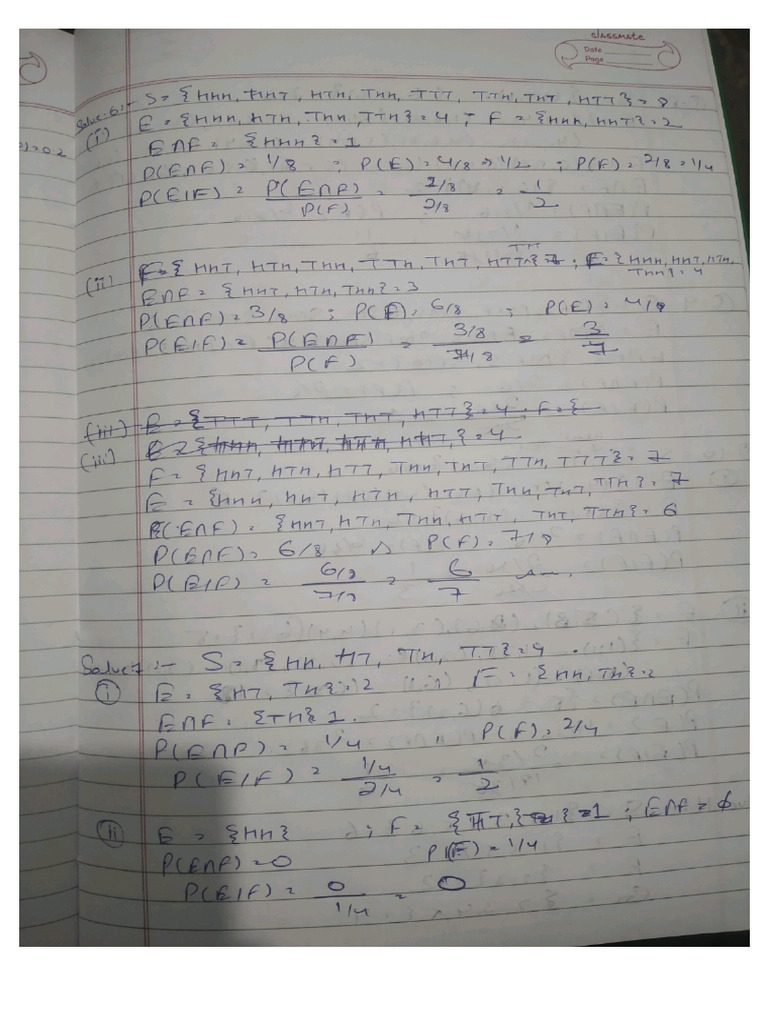 classmate
Date
Page
Solve:6:- S = {HHH, HHT, HTH, THH, TTT, TTH, THT, HTT} = 8
(i) E = {HHH, HTH, THH, TTH} = 4 ; F = {HHH, HHT} = 2
E∩F = {HHH} = 1
P(E∩F) = 1/8 ; P(E) = 4/8 => 1/2 ; P(F) = 2/8 = 1/4
P(E/F) = P(E∩F)/P(F) = 1/8 / 2/8 = 1/2
) = 0.2
(ii) F = {HHT, HTH, THH, TTH, THT, HTT, TTT} = 7 ; E = {HHH, HHT, HTH, THH} = 4
E∩F = {HHT, HTH, THH} = 3
P(E∩F) = 3/8 ; P(F) = 6/8 ; P(E) = 4/8
P(E/F) = P(E∩F)/P(F) = 3/8 / 7/8 = 3/7
(iii) E = {TTT, TTH, THT, HTT} = 4 ; F = {
(iii) E = {HHH, HHT, HTH, HHT,} = 4
F = {HHT, HTH, HTT, THH, THT, TTH, TTT} = 7
E = {HHH, HHT, HTH, HTT, THH, THT, TTH} = 7
P(E∩F) = {HHT, HTH, THH, HTT, THT, TTH} = 6
P(E∩F) = 6/8 P(F) = 7/8
P(E/F) = 6/8 / 7/8 = 6/7
Solve:7:- S = {HH, HT, TH, TT} = 4.
(i) E = {HT, TH} = 2 F = {HH, TH} = 2
E∩F = {TH} 1.
P(E∩F) = 1/4 , P(F) = 2/4
P(E/F) = 1/4 / 2/4 = 1/2
(ii) E = {HH} ; F = {TT,} = 1 ; E∩F = ϕ
P(E∩F) = 0 P(F) = 1/4
P(E/F) = 0 / 1/4 = 0